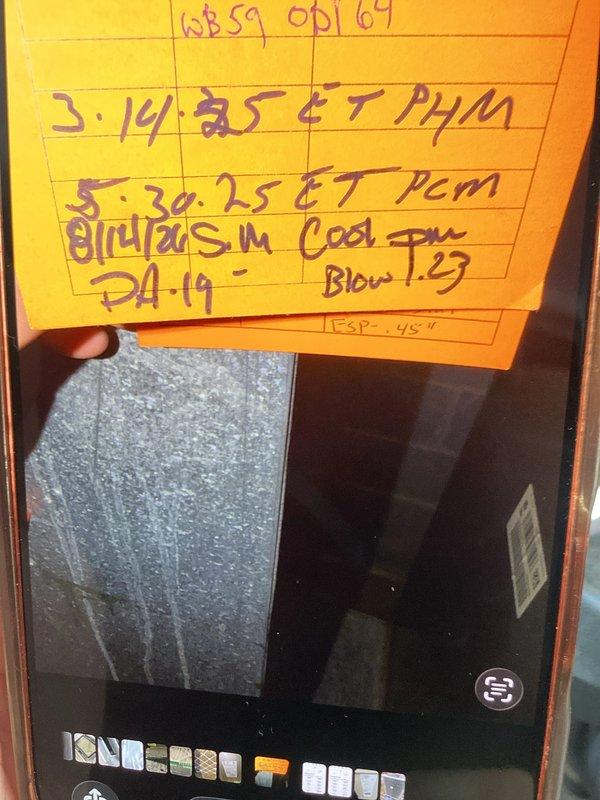 WB59 OD 64
3.14.25 ET PHM
5.30.25 ET PCM
8/14/26 S.M Cool pm
DA.19 Blow 1.23
ESP-.45"